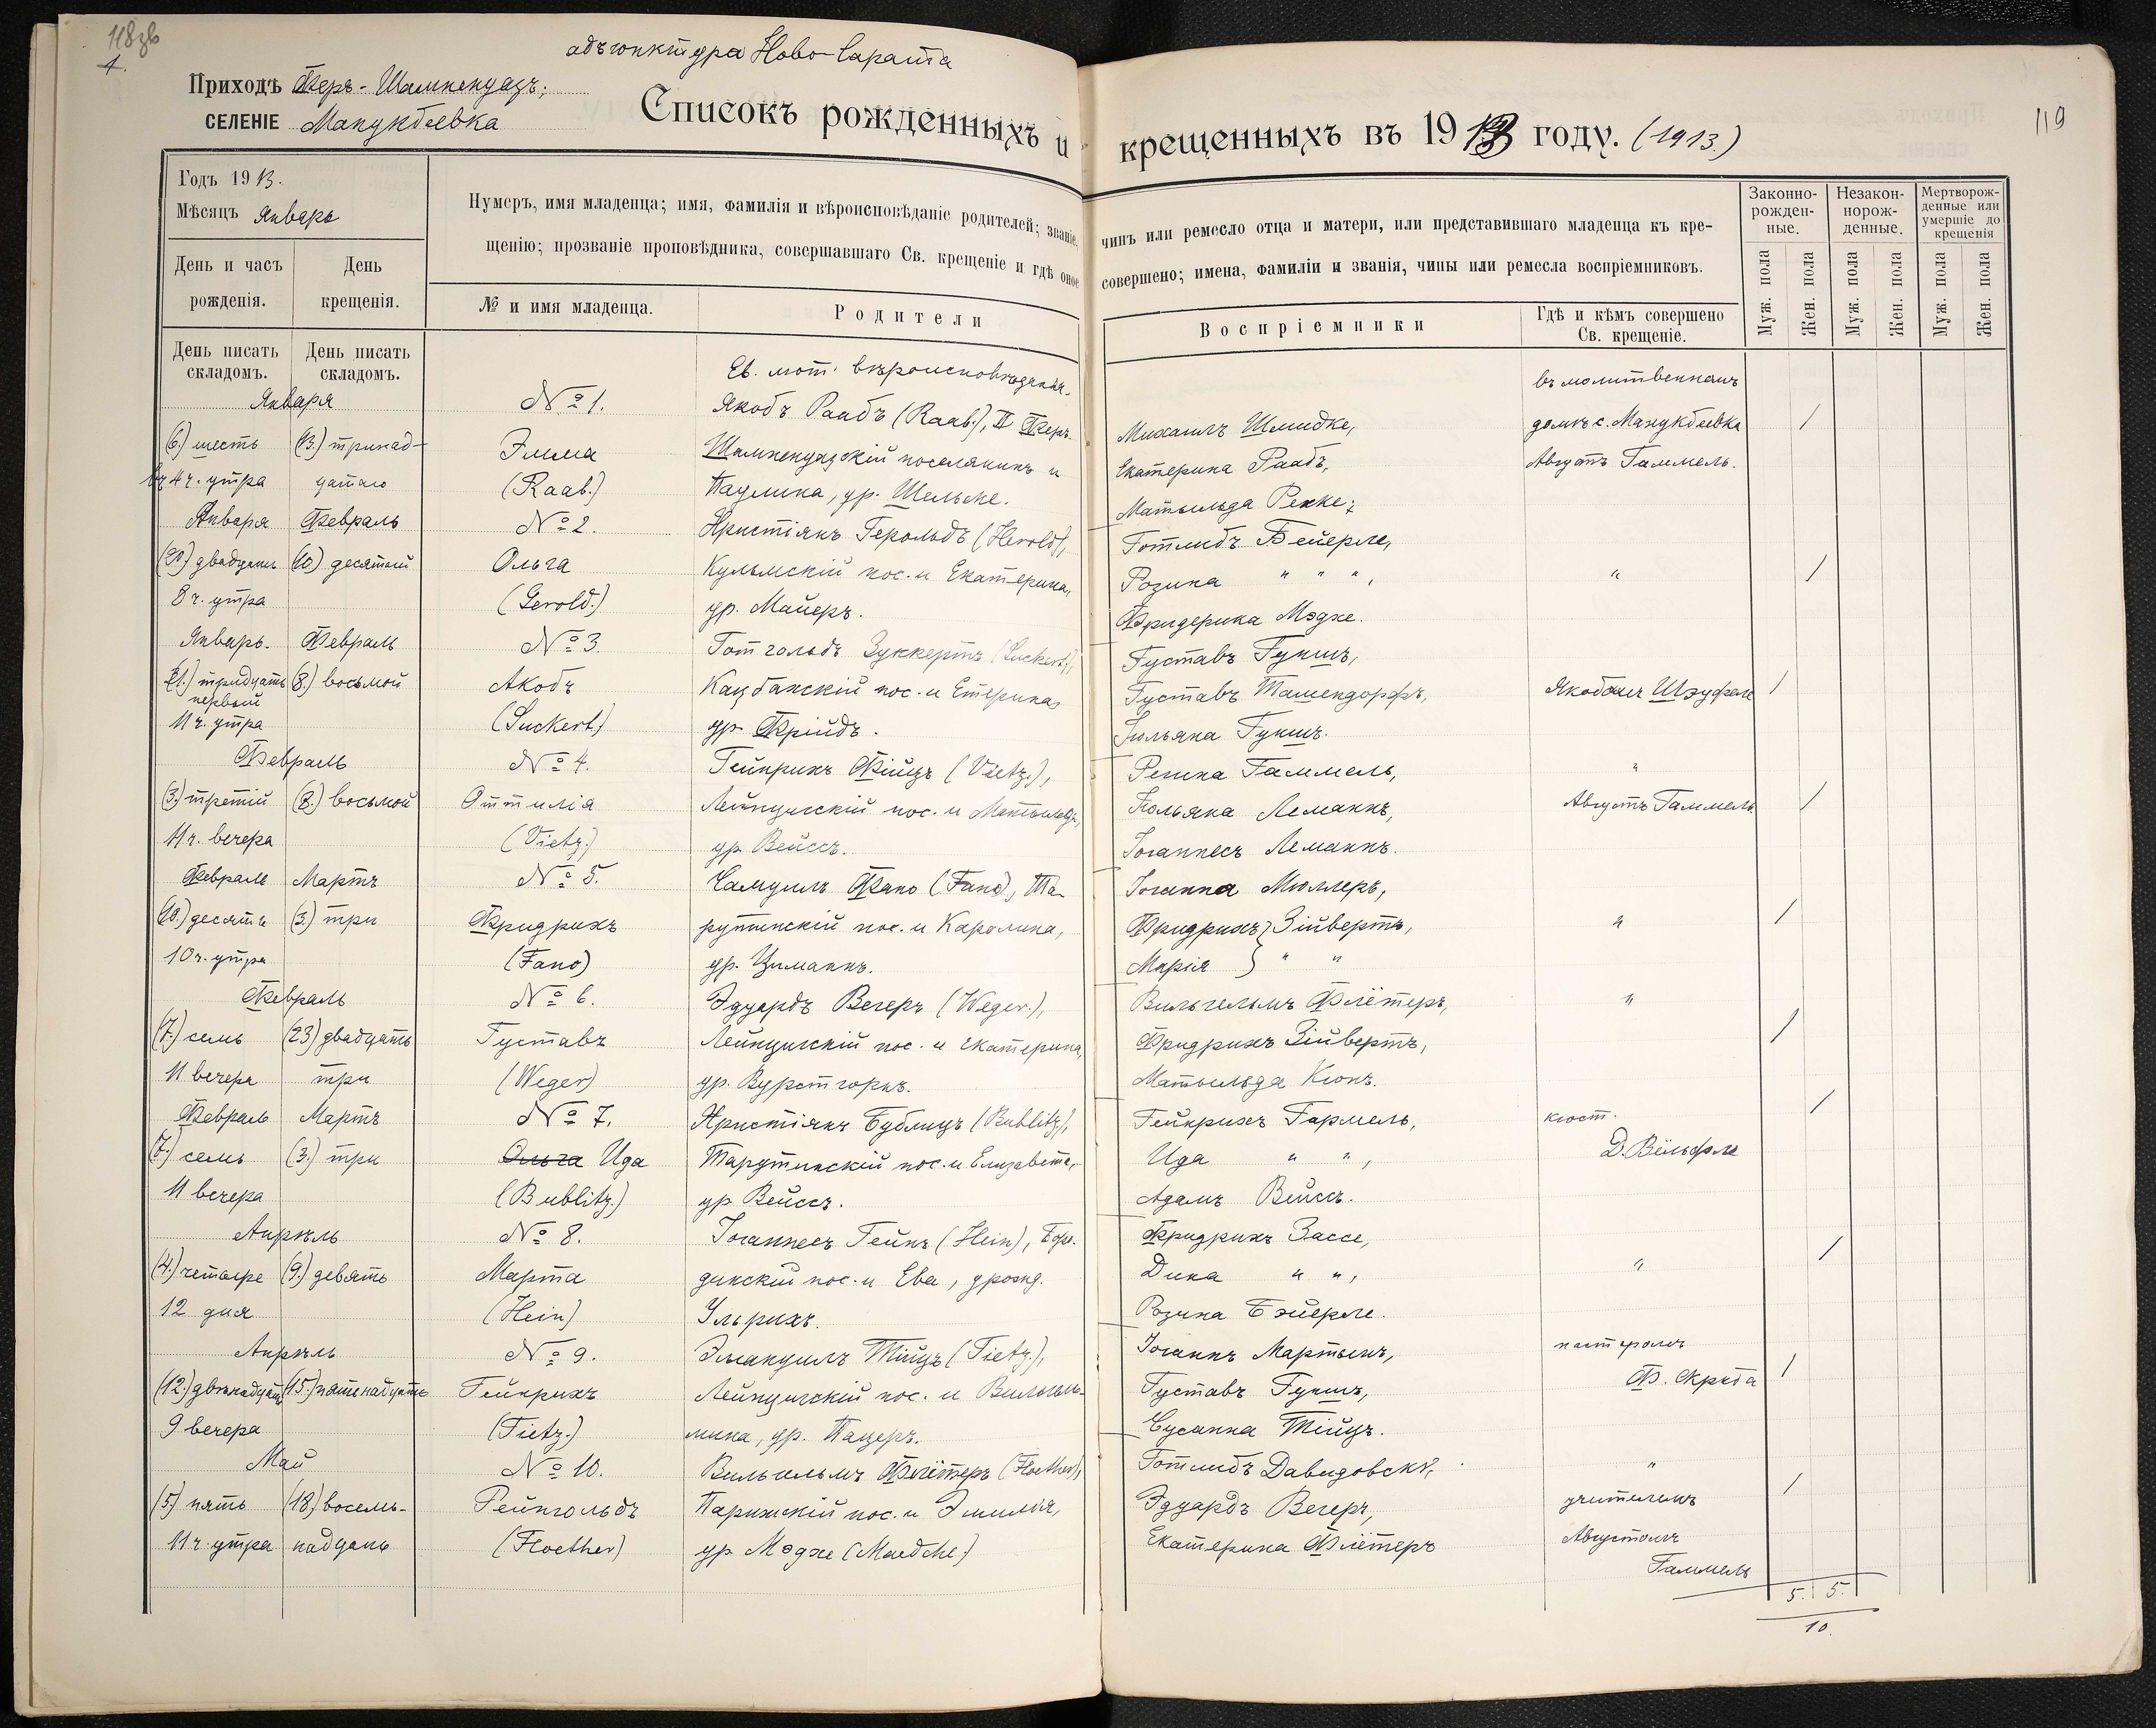 118 об
1.
адъюнктура Ново-Сарата
Приходъ Феръ-Шампенуазъ;
СЕЛЕНІЕ Манукбеевка
Списокъ рожденныхъ и крещенныхъ въ 1913 году. (1913.)
119
Годъ 1913.
Мѣсяцъ Январь
День и часъ рожденія.
День крещенія.
Нумеръ, имя младенца; имя, фамилія и вѣроисповѣданіе родителей; званіе, чинъ или ремесло отца и матери, или представившаго младенца къ кре-
щенію; прозваніе проповѣдника, совершавшаго Св. крещеніе и гдѣ оное совершено; имена, фамиліи и званія, чины или ремесла воспріемниковъ.
№ и имя младенца.
Родители
Воспріемники
Гдѣ и кѣмъ совершено Св. крещеніе.
Законно-рожден-ные.
Незакон-норож-денные.
Мертворож-денные или умершіе до крещенія
Муж. пола
Жен. пола
Муж. пола
Жен. пола
Муж. пола
Жен. пола
День писать складомъ.
День писать складомъ.
Ев. лют. вѣроисповѣданія.
въ молитвенномъ
Января
№ 1.
Якобъ Раабъ (Raab.), II Феръ-
Михаилъ Шмидке,
домѣ с. Манукбеевка
/
(6.) шесть
(13.) тринад-
Эмма
Шампенуазскій поселянинъ и
Екатерина Раабъ,
Августъ Гаммель.
въ 4 ч. утра
цатаго
(Raab.)
Паулина, ур. Шельске.
Матильда Ренке;
Января
Февраль
№ 2.
Христіянъ Герольдъ (Herold),
Готлибъ Бейерле,
(20.) двадцать
(10) десятый
Ольга
Кульмскій пос. и Екатерина,
Розина " " ",
"
/
8 ч. утра
(Gerold.)
ур. Майеръ.
Фридерика Мэдке.
Январь.
Февраль
№ 3.
Готгольдъ Зуккертъ (Suckert),
Густавъ Гукшъ,
(31.) тридцать первый
(8.) восьмой
Акобъ
Кацбахскій пос. и Етерина
Густавъ Ташендорфъ,
/
11 ч. утра
(Suckert.)
ур. Фрійдъ.
Юльяна Гукшъ.
Февраль
№ 4.
Гейнрихъ Фійцъ (Vietz.),
Регина Гаммель,
"
(3.) третій
(8.) восьмой
Оттилія
Лейпцигскій пос. и Матильда,
Юльяна Леманнъ,
Августъ Гаммель.
/
11 ч. вечера
(Vietz.)
ур. Вейссъ.
Іоганнесъ Леманнъ.
Февраль
Мартъ
№ 5.
Самуилъ Фано (Fano), Та-
Іоганна Мюллеръ,
(10.) десять
(3.) три
Фридрихъ
рутинскій пос. и Каролина,
Фридрихъ } Зійвертъ,
"
/
10 ч. утра
(Fano)
ур. Циманнъ.
Марія } " "
Февраль
№ 6.
Эдуардъ Вегеръ (Weger.),
Вильгельмъ Флётеръ,
"
(7.) семь
(23) двадцать
Густавъ
Лейпцигскій пос. и Екатерина,
Фридрихъ Зійвертъ,
/
11 вечера
три
(Weger)
ур. Вурстгорнъ.
Матильда Кюнъ.
Февраль
Мартъ
№ 7.
Христіянъ Бублицъ (Bublitz),
Гейнрихъ Гармель,
кюст.
/
(7.) семь
(3.) три
Ольга Ида
Тарутинскій пос. и Елизавета,
Ида " ",
Д. Вёльфле
11 вечера
(Bublitz.)
ур. Вейссъ.
Адамъ Вейссъ.
Апрѣль
№ 8.
Іоганнесъ Гейнъ (Hein), Боро-
Фридрихъ Зассе,
(4.) четыре
(9.) девять
Марта
динскій пос. и Ева, урожд.
Дина " ",
"
/
12 дня
(Hein)
Ульрихъ.
Розина Бэйерле.
Апрѣль
№ 9.
Эмануилъ Тійцъ (Tietz.),
Іоганнъ Мартынъ,
пасторомъ
(12.) двѣнадцать
(15.) пятенадцать
Гейнрихъ
Лейпцигскій пос. и Вильгель-
Густавъ Гукшъ,
/
9 вечера
(Tietz.)
мина, ур. Пацеръ.
Сусанна Тійцъ.
Май
№ 10.
Вильгельмъ Флётеръ (Floether),
Готлибъ Давидовскі,
"
(5.) пять
(18.) восемь-
Рейнгольдъ
Парижскій пос. и Эмилія,
Эдуардъ Вегеръ,
учителемъ
/
11 ч. утра
надцать
(Floether)
ур. Мэдхе (Maedche.)
Екатерина Флётеръ
Августомъ
Гаммель
5. 5.
10.